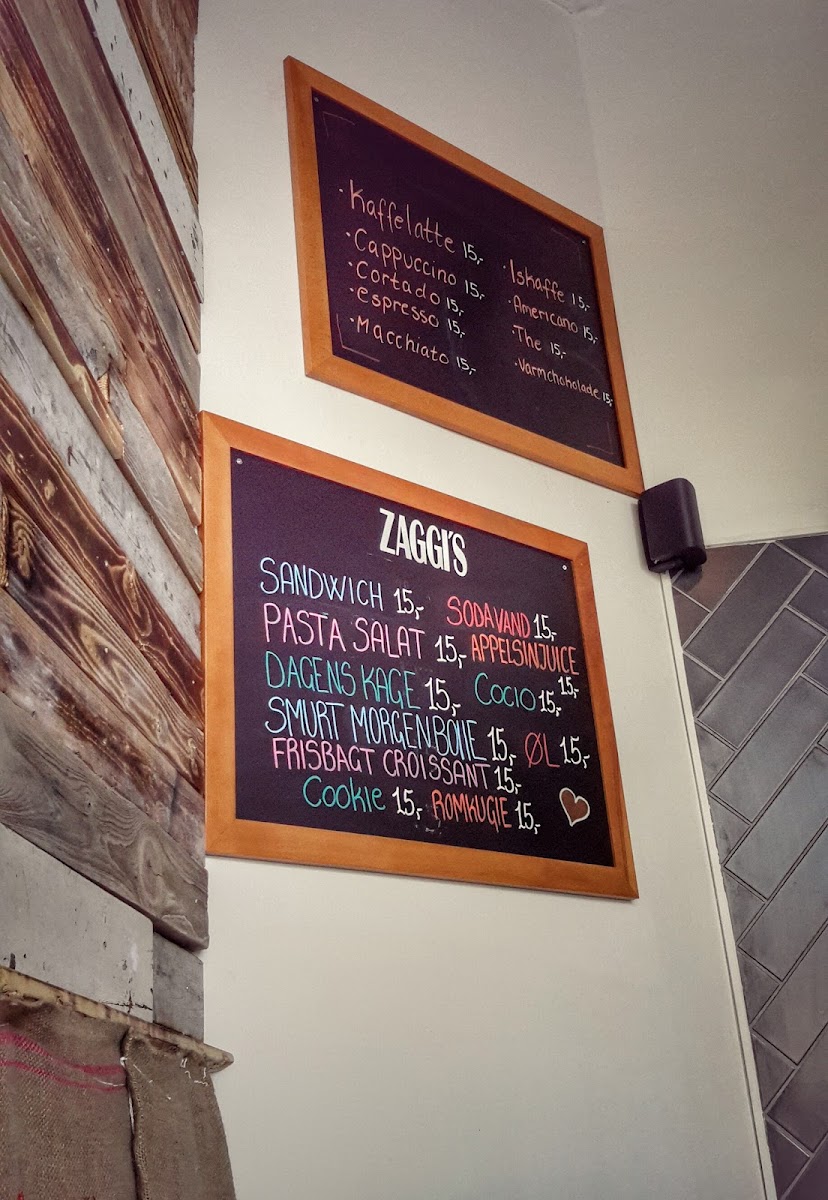 · Kaffelatte 15,-
· Cappuccino 15,-
· Cortado 15,-
· Espresso 15,-
· Macchiato 15,-
· Iskaffe 15,-
· Americano 15,-
· The 15,-
· Varmchokolade 15,-
ZAGGI'S
SANDWICH 15,- SODAVAND 15,-
PASTA SALAT 15,- APPELSINJUICE 15,-
DAGENS KAGE 15,- COCIO 15,-
SMURT MORGENBOLLE 15,- ØL 15,-
FRISBAGT CROISSANT 15,-
COOKIE 15,- ROMKUGLE 15,-